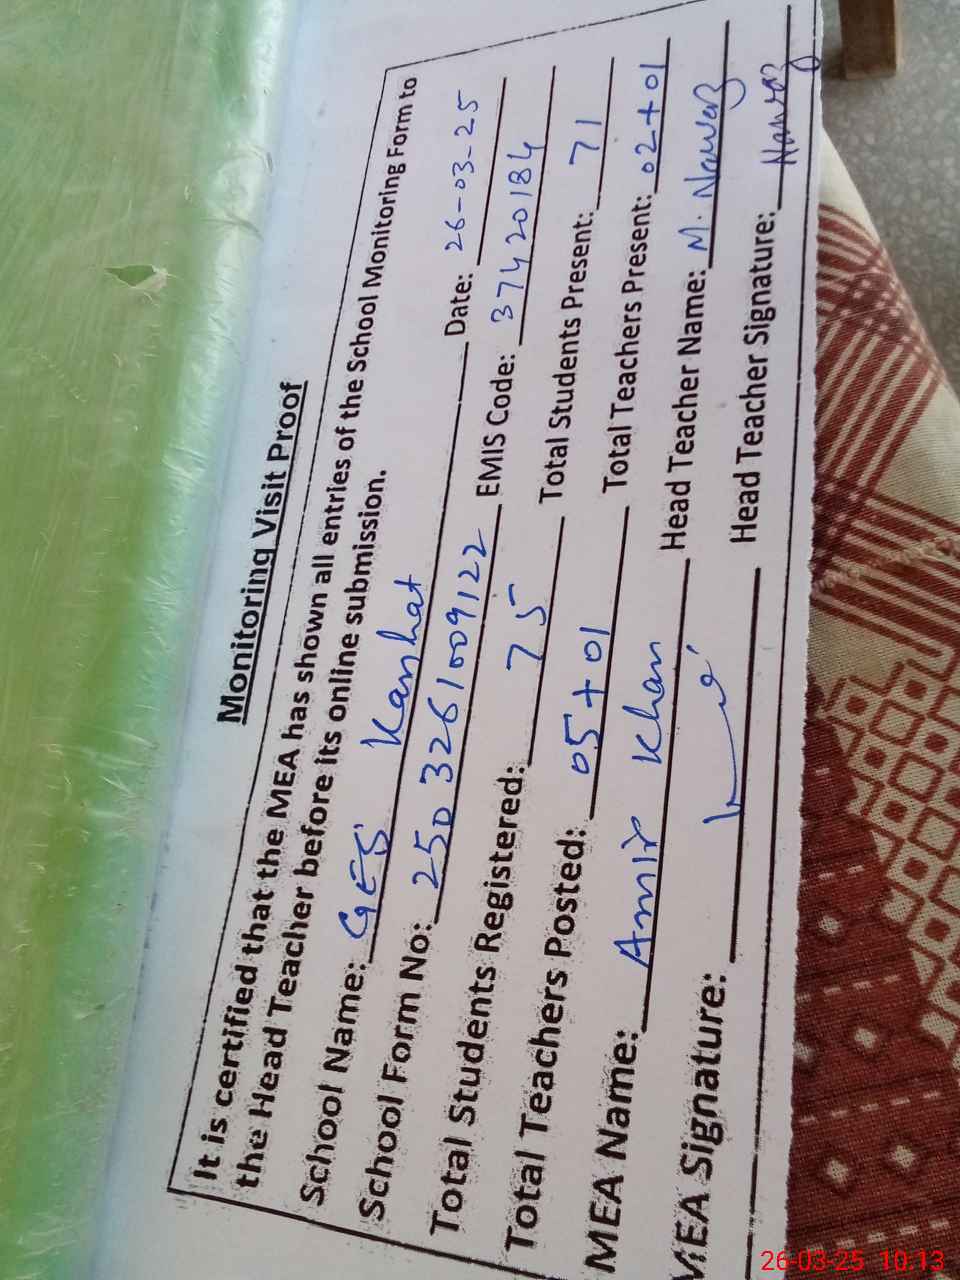 Monitoring Visit Proof
It is certified that the MEA has shown all entries of the School Monitoring Form to
the Head Teacher before its online submission.
School Name: GES Kanhat Date: 26-03-25
School Form No: 2503261009122 EMIS Code: 37420184
Total Students Registered: 75 Total Students Present: 71
Total Teachers Posted: 05+01 Total Teachers Present: 02+01
MEA Name: Amir Khan Head Teacher Name: M. Nawaz
MEA Signature: Head Teacher Signature: Nawaz
26-03-25 10:13